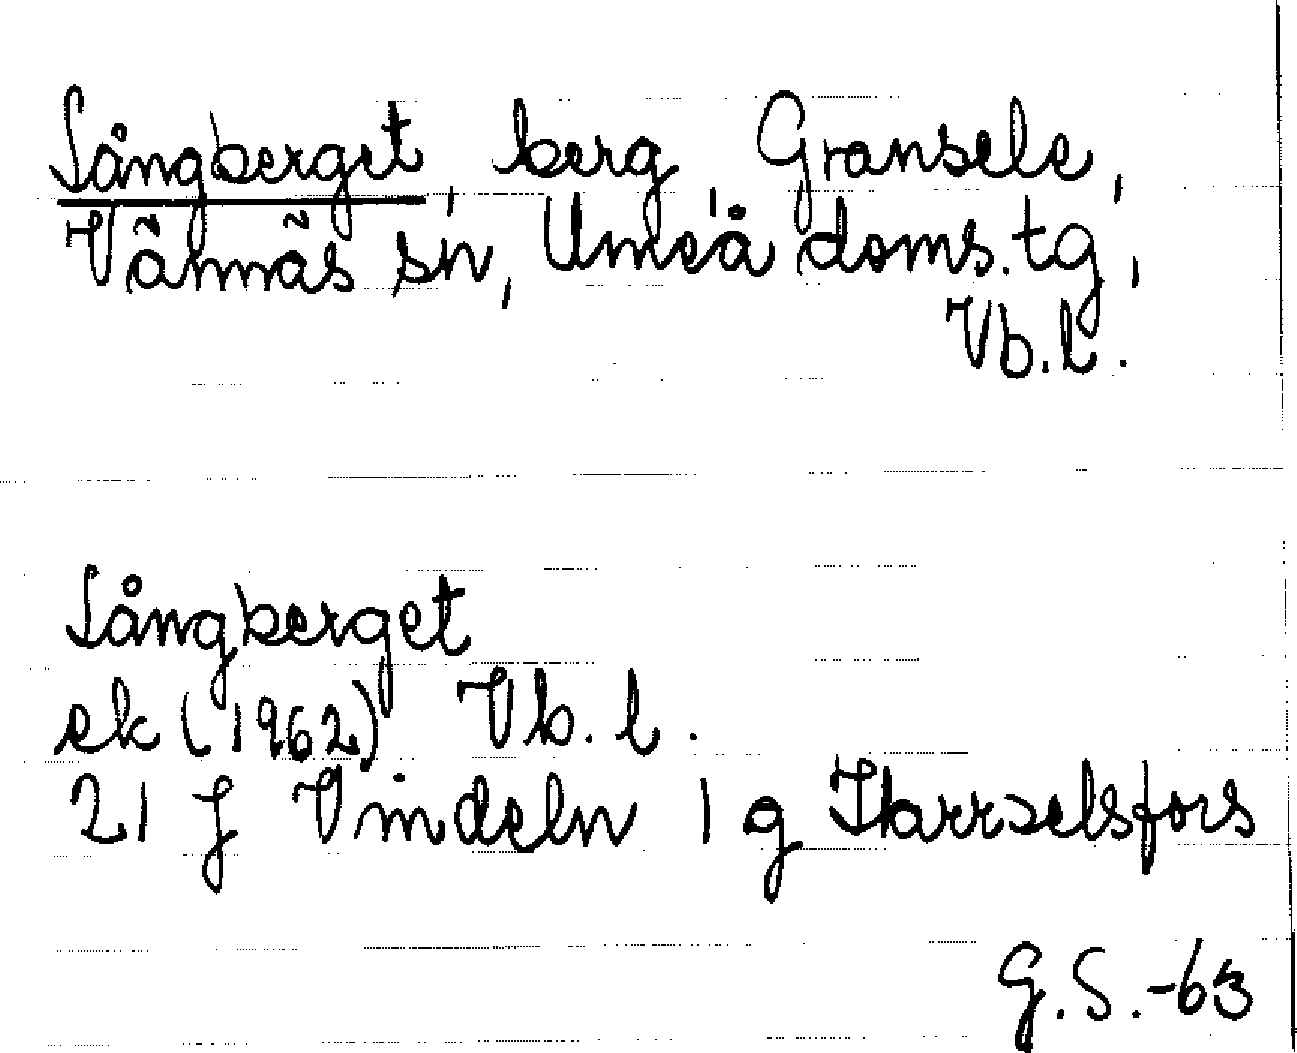 Sångberget, berg, Gransele,
Vännäs sn, Umeå doms. tg,
Vb. l.
Sångberget
ek (1962) Vb. l.
21 J Vindeln 1 g Harrselsfors
G. S. -63